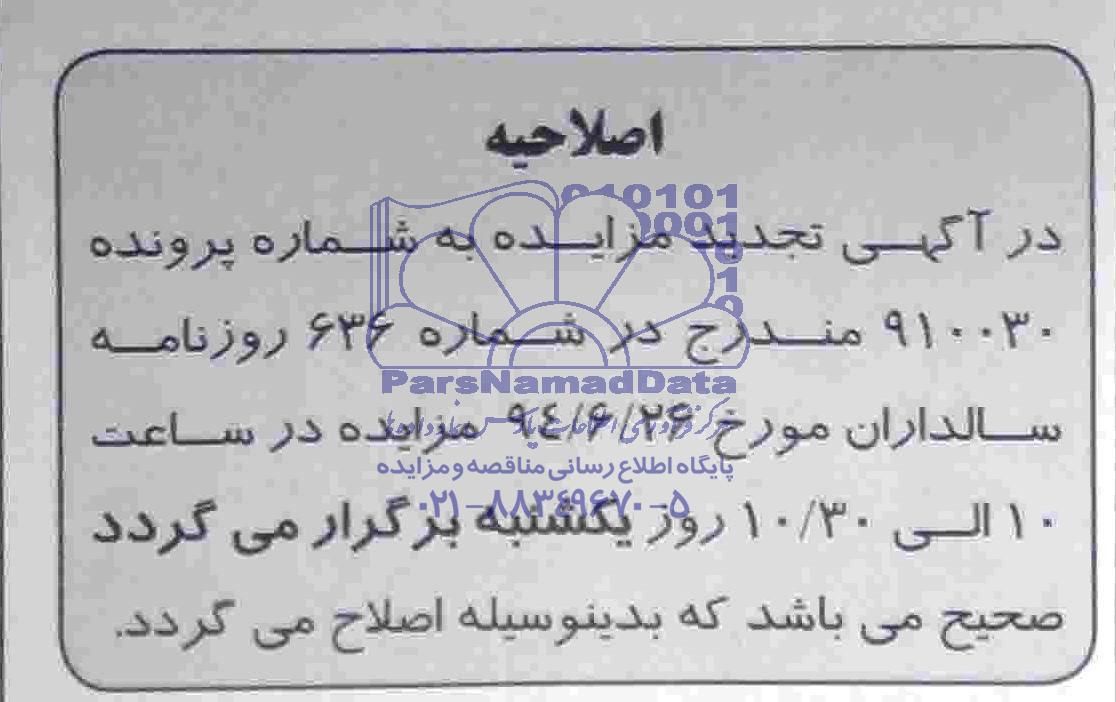 اصلاحیه
در آگهی تجدید مزایده به شماره پرونده
۹۱۰۰۳۰ مندرج در شماره ۶۳۶ روزنامه
سالداران مورخ ۹٤/۶/۲۶ مزایده در ساعت
۱۰ الی ۱۰/۳۰ روز یکشنبه برگزار می گردد
صحیح می باشد که بدینوسیله اصلاح می گردد.
010101
0001
ParsNamadData
پایگاه اطلاع رسانی مناقصه و مزایده
۰۲۱-۸۸۳٤۹۶۷۰-۵